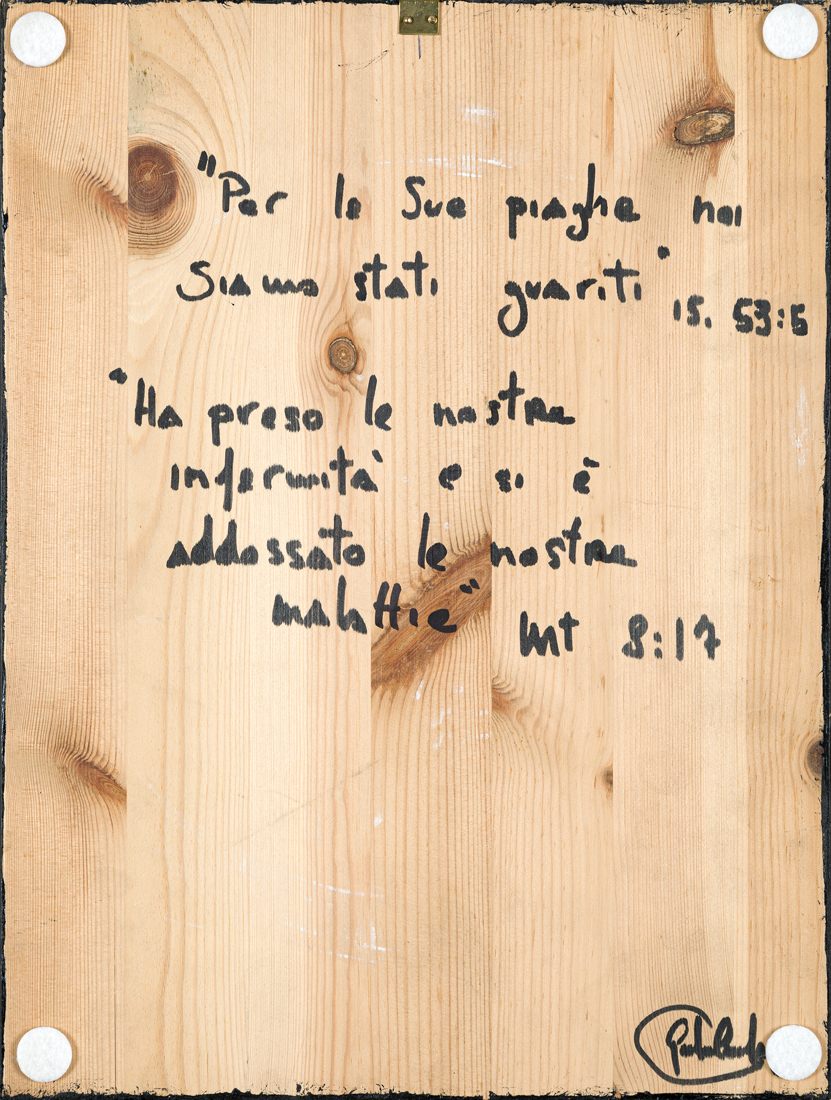 "Per le Sue piaghe noi
Siamo stati guariti" is. 53:5
"Ha preso le nostre
infermità e si è
addossato le nostre
malattie" Mt 8:17